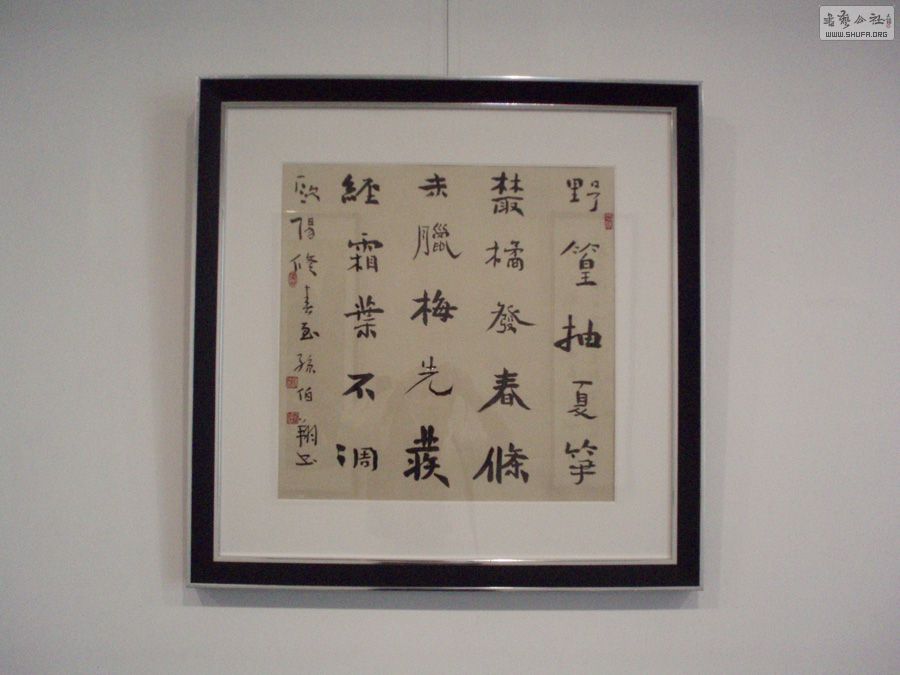 野篁抽夏笋
叢橘發春條
未臘梅先
經霜葉不凋
歐陽修 春 孫伯翔書
書藝公社
WWW.SHUFA.ORG